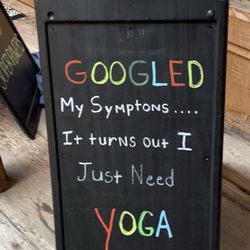 GOOGLED
My Symptons....
It turns out I
Just Need
YOGA